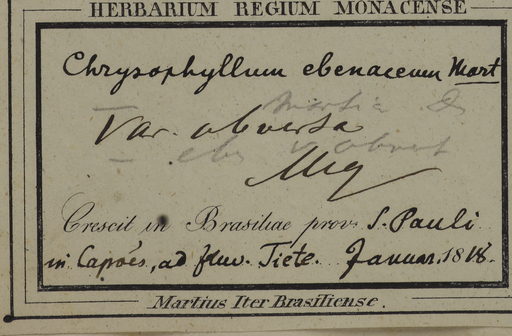 HERBARIUM REGIUM MONACENSE
Chrysophyllum ebenaceum Mart
Var. obversa
Miq
Crescit in Brasiliae prov. S. Pauli
in Capoẽs, ad fluv. Tiéte. Januar. 1818.
Martius Iter Brasiliense.